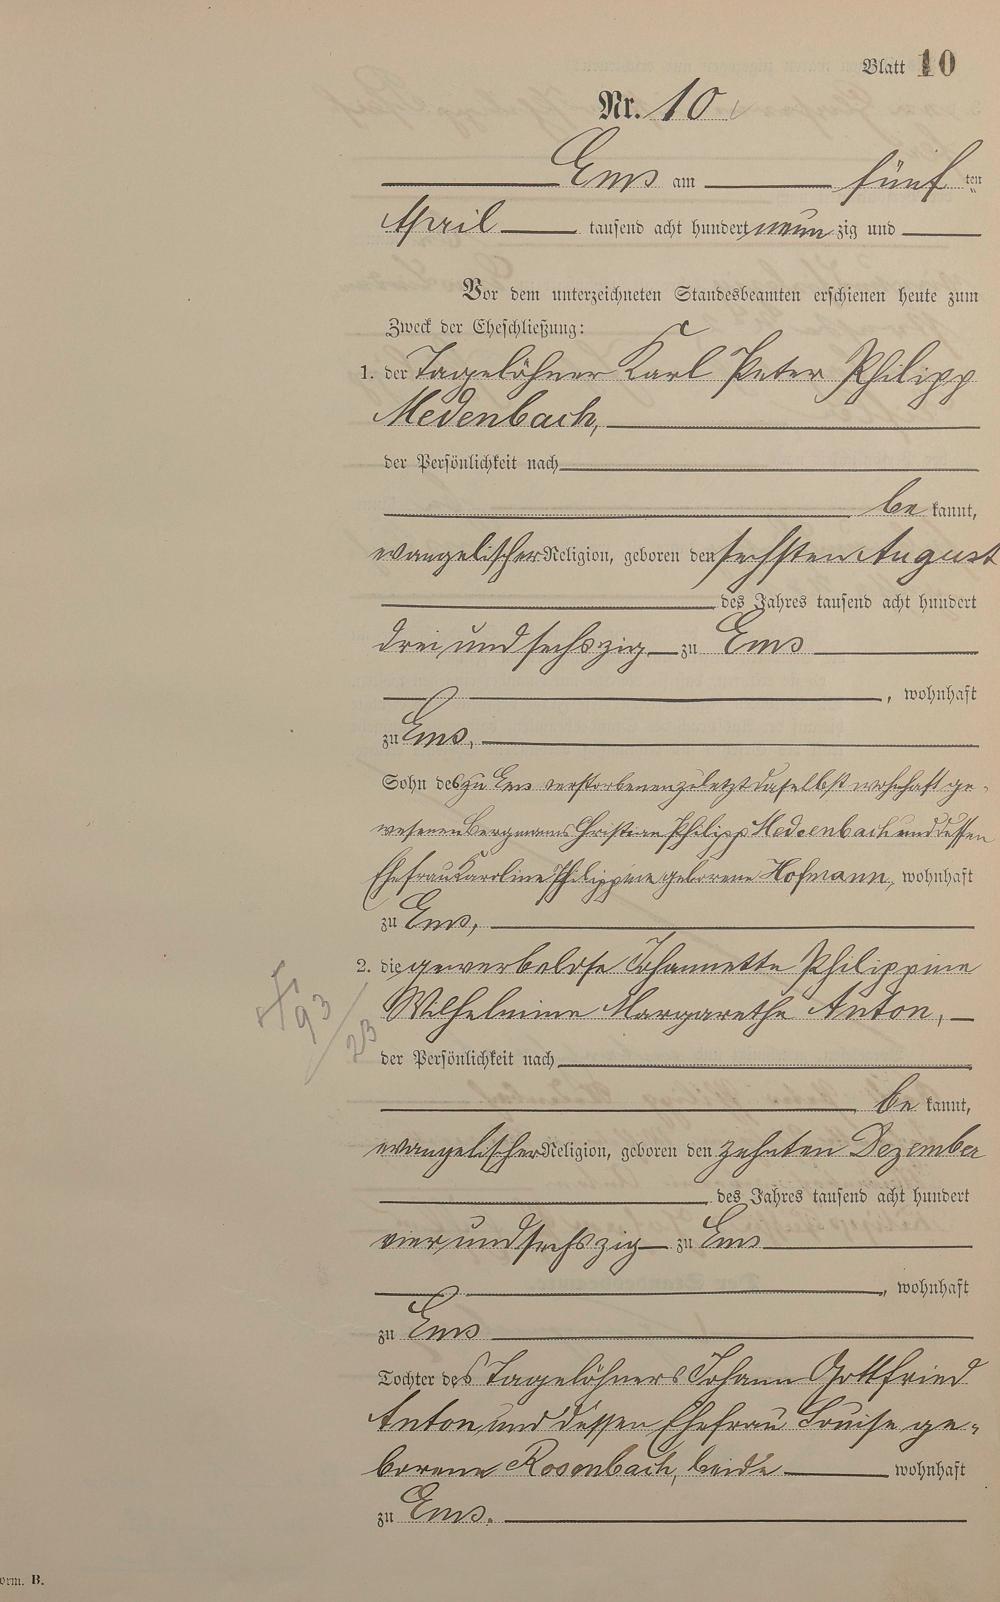 Blatt 10
Nr. 10
Ems am fünf ten
April tausend acht hundert neun zig und
Vor dem unterzeichneten Standesbeamten erschienen heute zum
Zweck der Eheschließung:
1. der Tagelöhner Karl Peter Philipp
Medenbach,
der Persönlichkeit nach
be kannt,
evangelischer Religion, geboren den sechsten August
des Jahres tausend acht hundert
drei und sechszig zu Ems
, wohnhaft
zu Ems,
Sohn des zu Ems verstorbenen zuletzt daselbst wohnhaft ge-
wesenen Bergmanns Christian Philipp Medenbach und dessen
Ehefrau Karoline Philippine geborene Hofmann, wohnhaft
zu Ems,
2. die gewerbelose Johannette Philippine
Wilhelmine Margarethe Anton,
93/23
der Persönlichkeit nach
be kannt,
evangelischer Religion, geboren den zehnten Dezember
des Jahres tausend acht hundert
vier und sechszig zu Ems
, wohnhaft
zu Ems
Tochter des Tagelöhners Johann Gottfried
Anton und dessen Ehefrau Louise ge-
borene Rosenbach, beide wohnhaft
zu Ems.
orm. B.